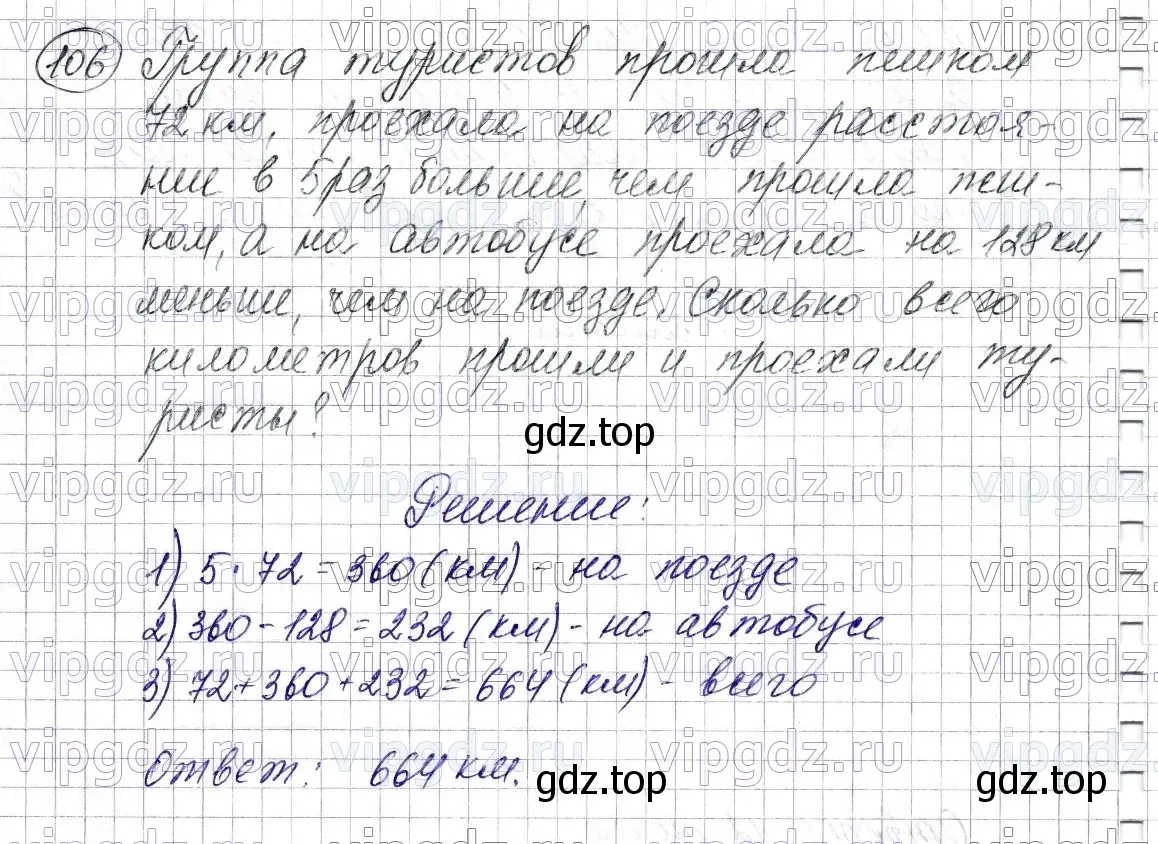 106 Группа туристов прошла пешком
72 км, проехала на поезде расстоя-
ние в 5 раз больше, чем прошла пеш-
ком, а на автобусе проехала на 128 км
меньше, чем на поезде. Сколько всего
километров прошли и проехали ту-
ристы?
gdz.top
Решение:
1) 5 · 72 = 360 (км) - на поезде
2) 360 - 128 = 232 (км) - на автобусе
3) 72 + 360 + 232 = 664 (км) - всего
Ответ: 664 км.
gdz.top
gdz.top
vipgdz.ru